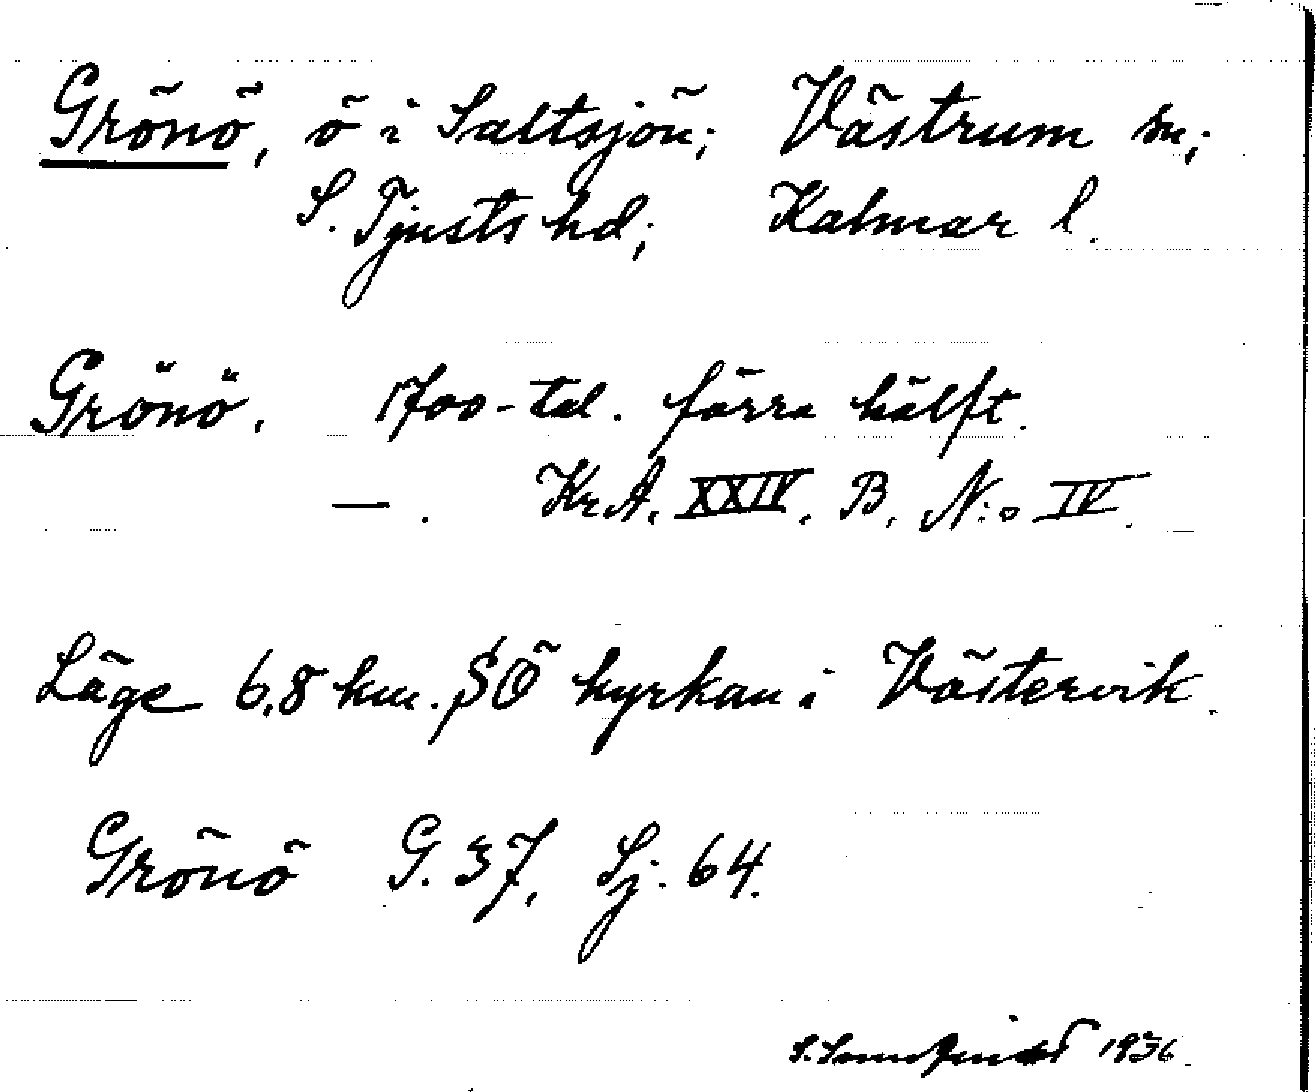 Grönö, ö i Saltsjön; Västrum sn;
S. Tjusts hd; Kalmar l.
Grönö. 1700-tal. förra hälft.
— . Kr.A. XXIV. B. N:o IV.
Läge 6,8 km. SO kyrkan i Västervik.
Grönö G. 37, Sj. 64.
S. 1936.